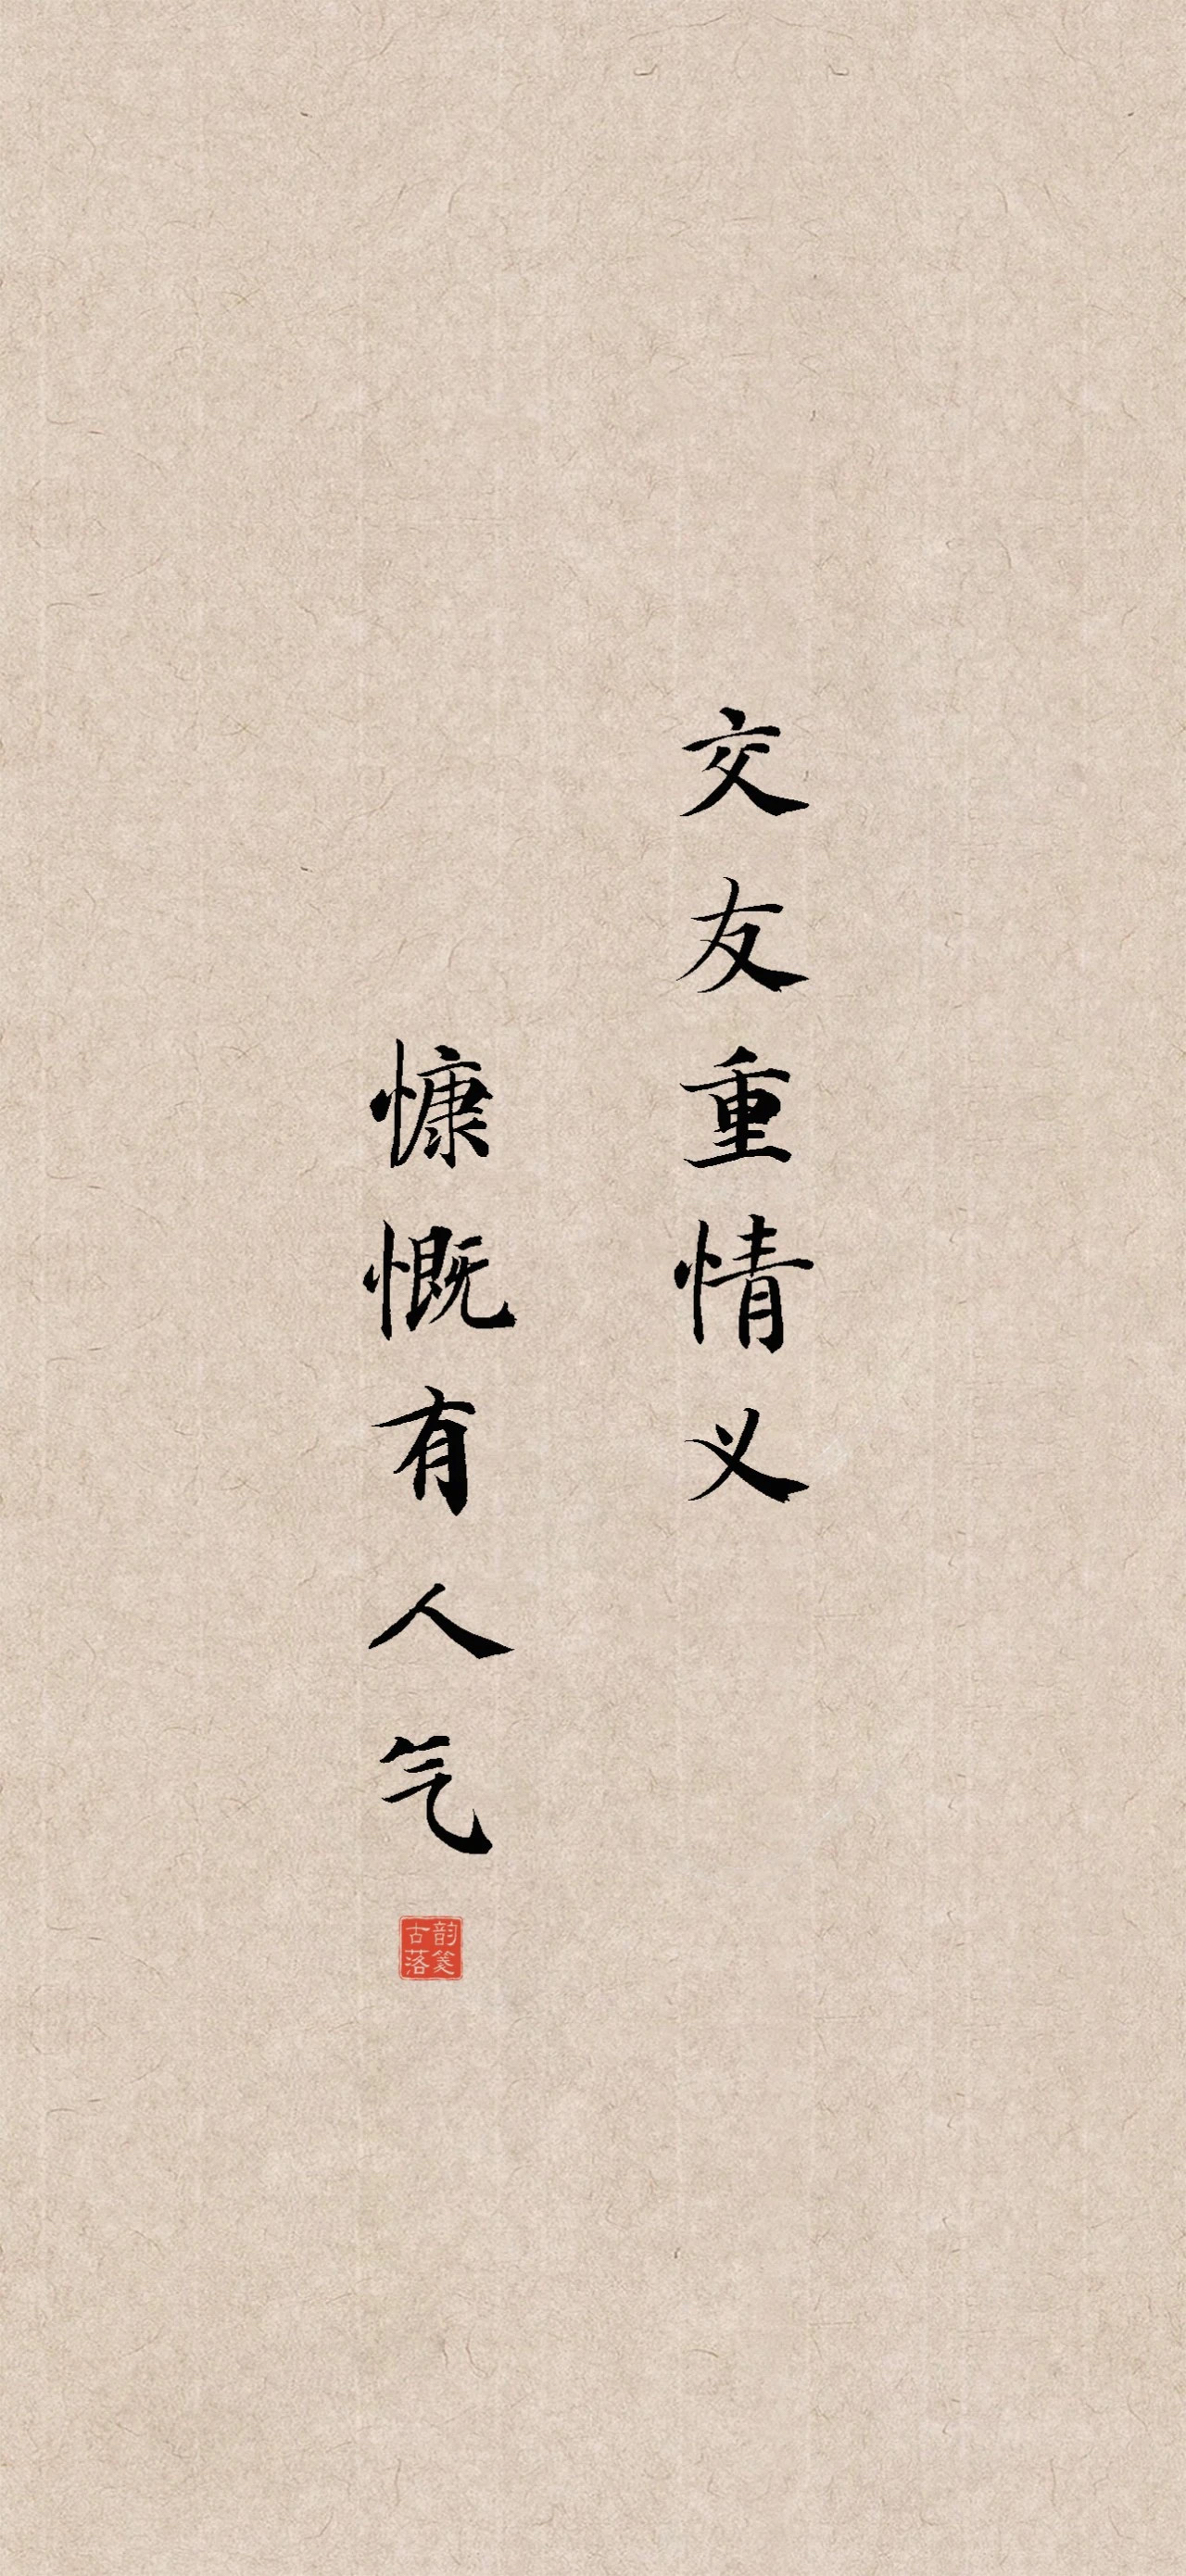 交友重情义
慷慨有人气
韵笺
古落